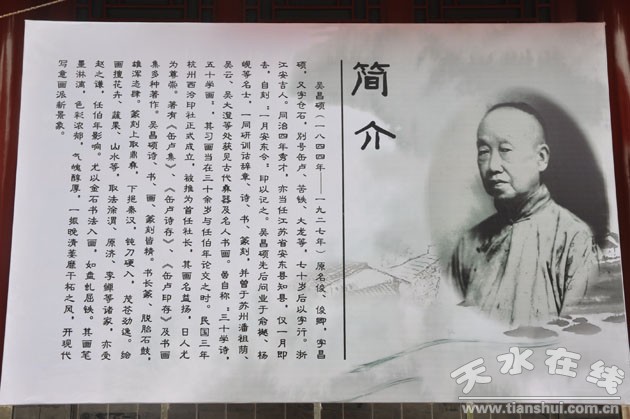 简介
吴昌硕(一八四四年——一九二七年)原名俊、俊卿,字昌
硕,又字仓石,别号缶卢、苦铁、大龙等,七十岁后以字行。浙
江安吉人。同治四年秀才,亦当任江苏省安东县知县,仅一月即
去,自刻"一月安东令"印以记之。吴昌硕先后问业于俞樾、杨
岘等名士,一同研训诂辞章、诗、书、篆刻,并曾于苏州潘祖荫、
吴云、吴大澂等处获见古代彝器及名人书画。尝自称"三十学诗,
五十学画",其习画当在三十余岁与任伯年论交之时。民国三年
杭州西泠印社正式成立,被推为首任社长,其画名益扬,日人尤
为尊崇。著有《缶卢集》、《缶卢诗存》、《缶卢印存》及书画
集多种著作。吴昌硕诗、书、画、篆刻皆精。书长篆,脱胎石鼓,
雄浑恣肆。篆刻上取鼎彝,下挹秦汉,钝刀硬入,茂苍劲逸。绘
画擅花卉、蔬果、山水等,取法徐渭、原济、李鱓等诸家,亦受
赵之谦,任伯年影响。尤以金石书法入画,如盘虬屈铁。其画笔
墨淋漓,色彩浓郁,气魄醇厚,一振晚清萎靡干枯之风,开现代
写意画派新景象。
天水在线
www.tianshui.com.cn